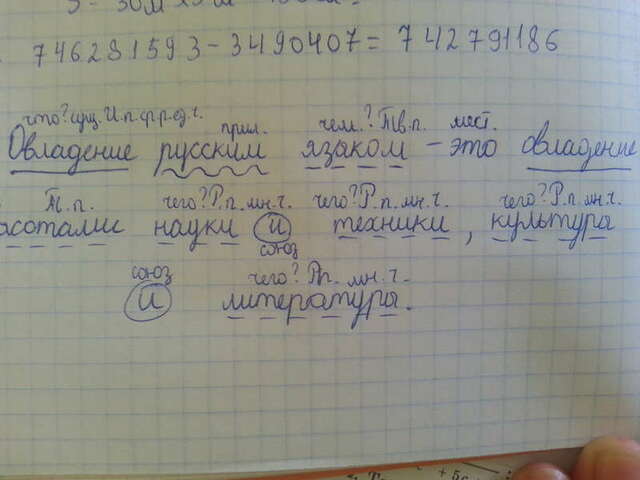 746281593-3490407= 742791186
что? сущ. И.п. ср.р. ед.ч. прил. чем? Тв.п. мест.
Овладение русским языком - это овладение
Т.п. чего? Р.п. мн.ч. чего? Р.п. мн.ч. чего? Р.п. мн.ч.
асотами науки и техники, культура
союз
союз чего? Рп. мн.ч.
и литературы.